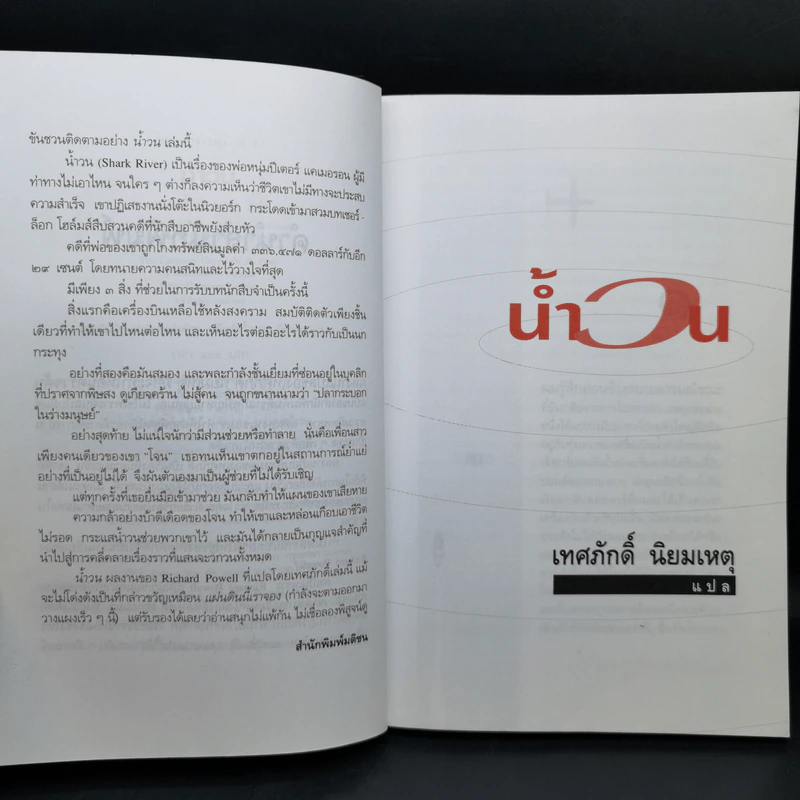 ขันชวนติดตามอย่าง น้ำวน เล่มนี้
น้ำวน (Shark River) เป็นเรื่องของพ่อหนุ่มปีเตอร์ แคเมอรอน ผู้มี
ท่าทางไม่เอาไหน จนใคร ๆ ต่างก็ลงความเห็นว่าชีวิตเขาไม่มีทางจะประสบ
ความสำเร็จ เขาปฏิเสธงานนั่งโต๊ะในนิวยอร์ก กระโดดเข้ามาสวมบทเชอร์-
ล็อก โฮล์มส์สืบสวนคดีที่นักสืบอาชีพยังส่ายหัว
คดีที่พ่อของเขาถูกโกงทรัพย์สินมูลค่า ๓๓๖,๔๗๑ ดอลลาร์กับอีก
๒๙ เซนต์ โดยทนายความคนสนิทและไว้วางใจที่สุด
มีเพียง ๓ สิ่ง ที่ช่วยในการรับบทนักสืบจำเป็นครั้งนี้
สิ่งแรกคือเครื่องบินเหลือใช้หลังสงคราม สมบัติติดตัวเพียงชิ้น
เดียวที่ทำให้เขาไปไหนต่อไหน และเห็นอะไรต่อมิอะไรได้ราวกับเป็นนก
กระทุง
อย่างที่สองคือมันสมอง และพละกำลังชั้นเยี่ยมที่ซ่อนอยู่ในบุคลิก
ที่ปราศจากพิษสง ดูเกียจคร้าน ไม่สู้คน จนถูกขนานนามว่า “ปลากระบอก
ในร่างมนุษย์”
อย่างสุดท้าย ไม่แน่ใจนักว่ามีส่วนช่วยหรือทำลาย นั่นคือเพื่อนสาว
เพียงคนเดียวของเขา “โจน” เธอทนเห็นเขาตกอยู่ในสถานการณ์ย่ำแย่
อย่างที่เป็นอยู่ไม่ได้ จึงผันตัวเองมาเป็นผู้ช่วยที่ไม่ได้รับเชิญ
แต่ทุกครั้งที่เธอยื่นมือเข้ามาช่วย มันกลับทำให้แผนของเขาเสียหาย
ความกล้าอย่างบ้าดีเดือดของโจน ทำให้เขาและหล่อนเกือบเอาชีวิต
ไม่รอด กระแสน้ำวนช่วยพวกเขาไว้ และมันได้กลายเป็นกุญแจสำคัญที่
นำไปสู่การคลี่คลายเรื่องราวที่แสนจะวกวนทั้งหมด
น้ำวน ผลงานของ Richard Powell ที่แปลโดยเทศภักดิ์เล่มนี้ แม้
จะไม่โด่งดังเป็นที่กล่าวขวัญเหมือน แผ่นดินนี้เราจอง (กำลังจะตามออกมา
วางแผงเร็ว ๆ นี้) แต่รับรองได้เลยว่าอ่านสนุกไม่แพ้กัน ไม่เชื่อลองพิสูจน์ดู
สำนักพิมพ์มติชน
น้ำวน
เทศภักดิ์ นิยมเหตุ
แปล